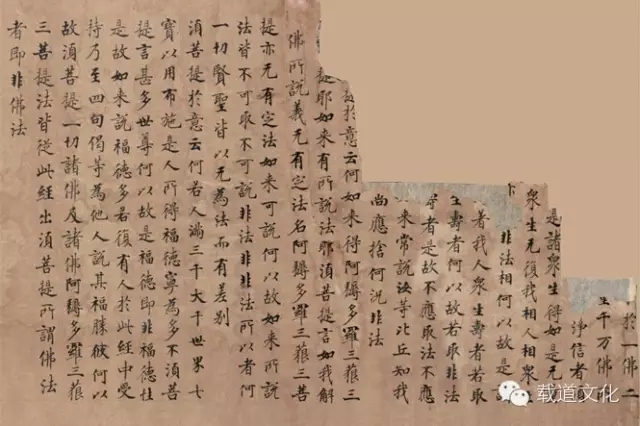 於一佛二
生千万佛
淨信者
是諸衆生得如是无
衆生无復我相人相衆
非法相何以故是
著我人衆生壽者若取
生壽者何以故若取非法
者是故不應取法不應
来常說汝等比丘知我
尚應捨何況非法
於意云何如来得阿耨多羅三藐三
提耶如来有所說法耶須菩提言如我解
佛所說義无有定法名阿耨多羅三藐三菩
提亦无有定法如来可說何以故如来所說
法皆不可取不可說非法非非法所以者何
一切賢聖皆以无為法而有差别
須菩提於意云何若人滿三千大千世界七
寶以用布施是人所得福德寧為多不須菩
提言甚多世尊何以故是福德即非福德性
是故如来說福德多若復有人於此經中受
持乃至四句偈等為他人說其福勝彼何以
故須菩提一切諸佛及諸佛阿耨多羅三藐
三菩提法皆從此經出須菩提所謂佛法
者即非佛法
载道文化